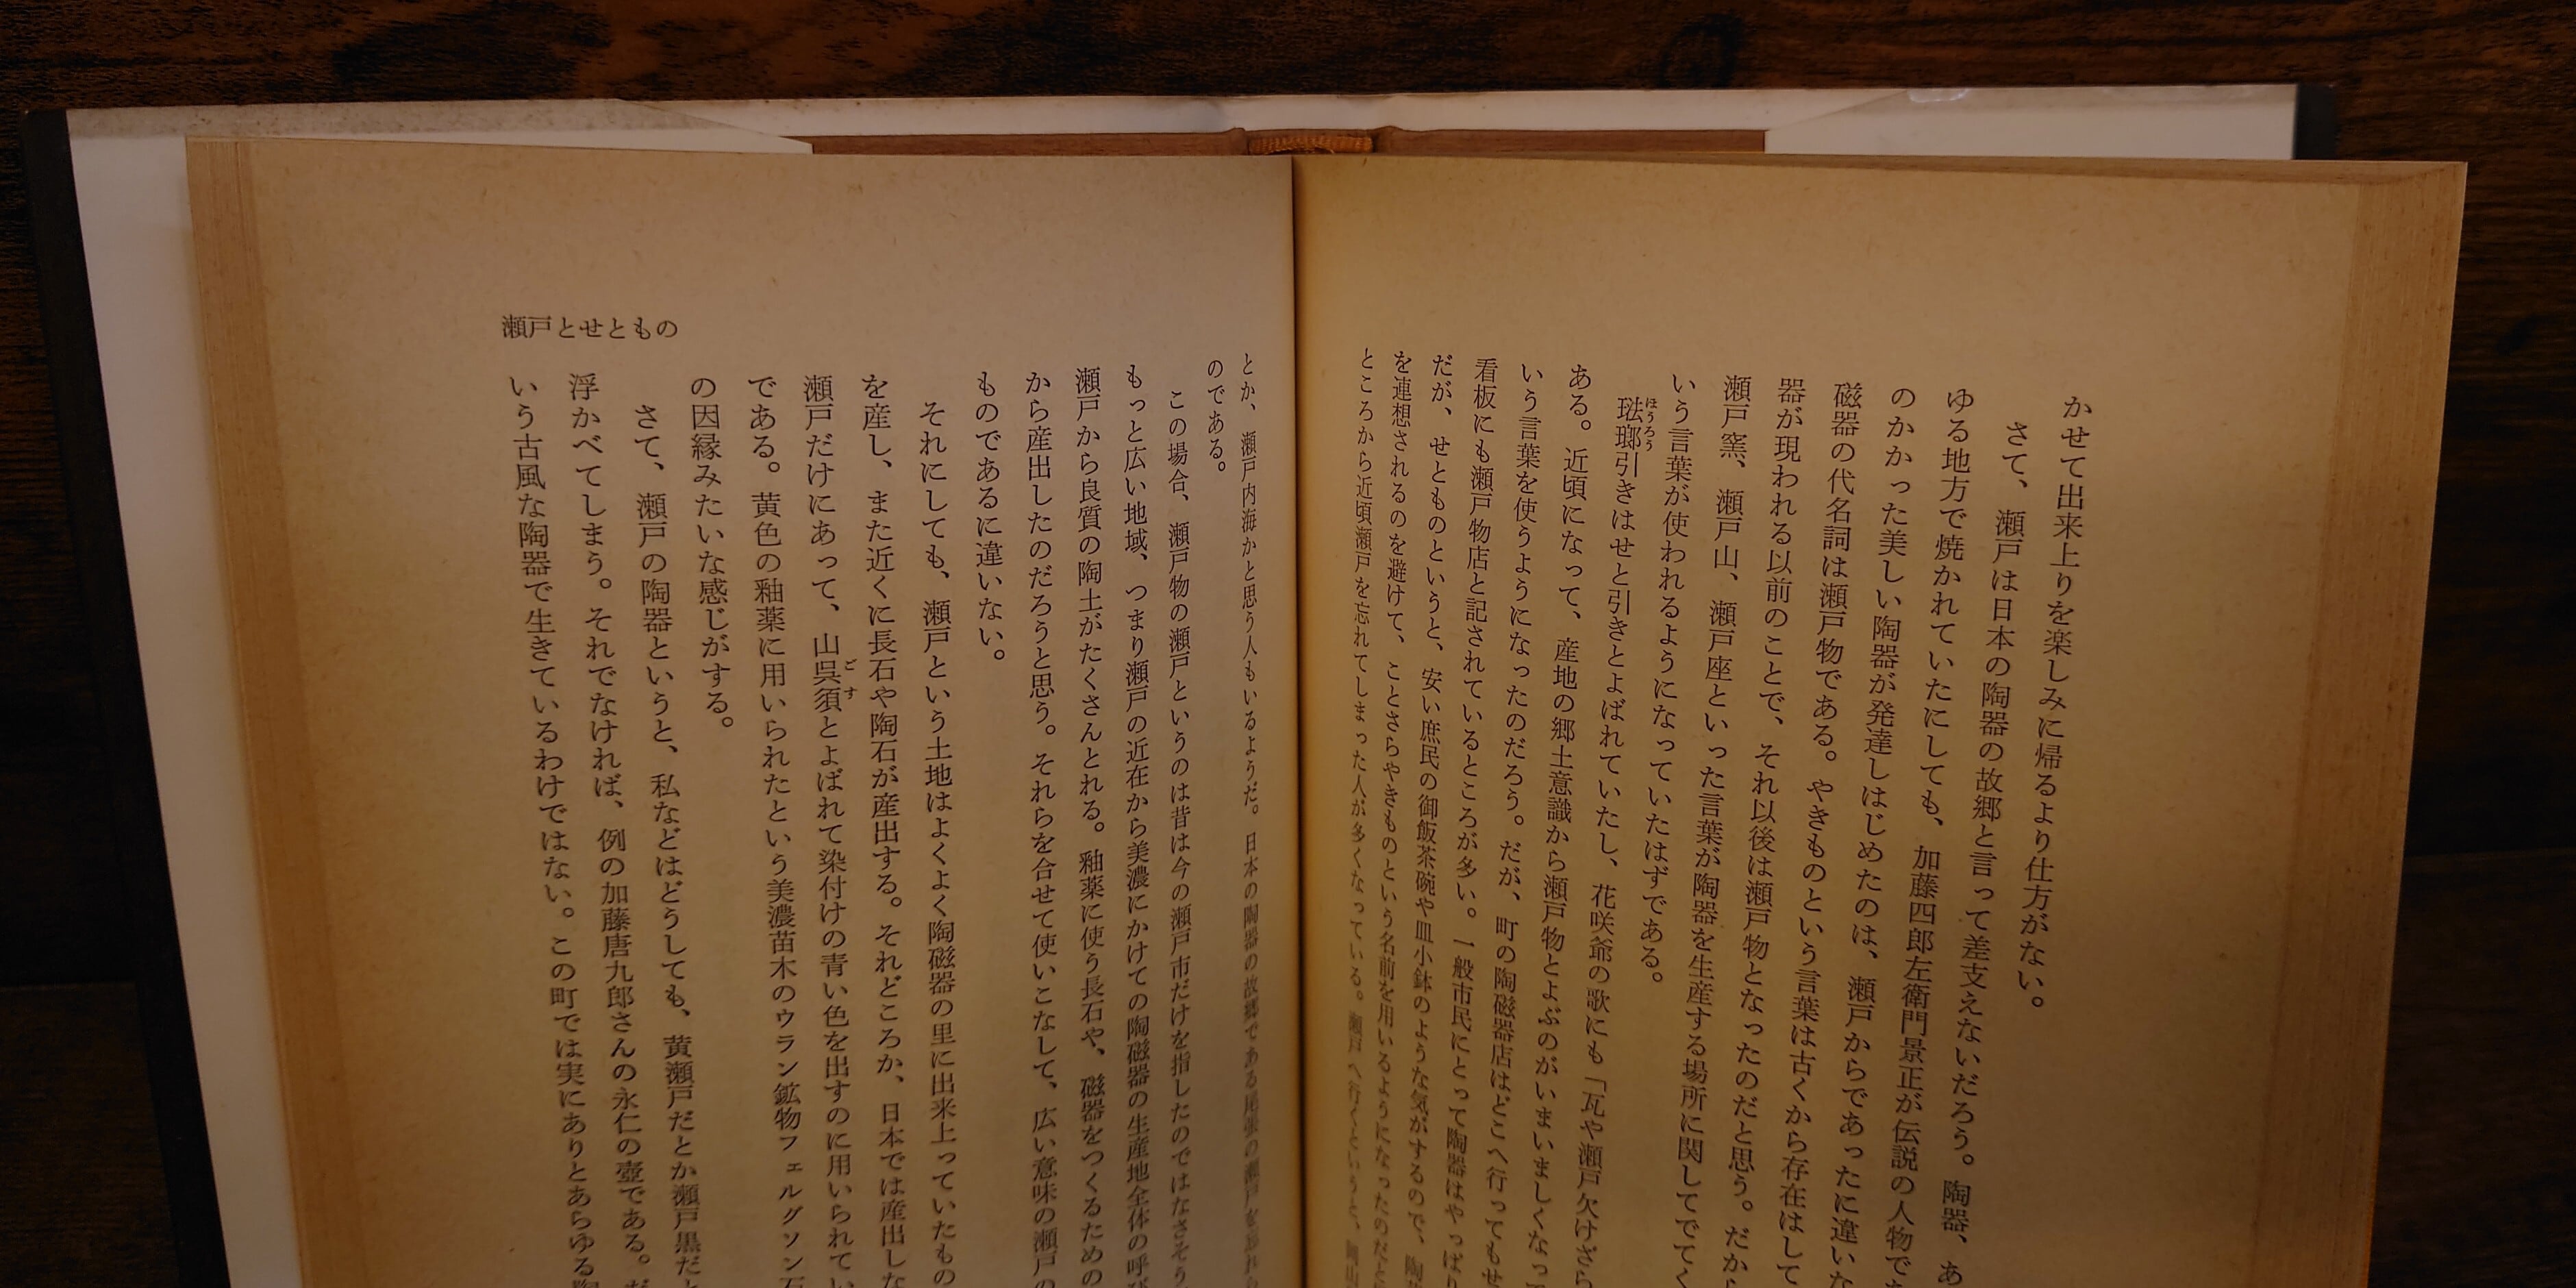 かせて出来上りを楽しみに帰るより仕方がない。
さて、瀬戸は日本の陶器の故郷と言って差支えないだろう。陶器、あ
ゆる地方で焼かれていたにしても、加藤四郎左衛門景正が伝説の人物で
のかかった美しい陶器が発達しはじめたのは、瀬戸からであったに違いな
磁器の代名詞は瀬戸物である。やきものという言葉は古くから存在はして
器が現われる以前のことで、それ以後は瀬戸物となったのだと思う。だから
瀬戸窯、瀬戸山、瀬戸座といった言葉が陶器を生産する場所に関してでてく
いう言葉が使われるようになっていたはずである。
琺瑯引きはせと引きとよばれていたし、花咲爺の歌にも「瓦や瀬戸欠けざら
ほうろう
ある。近頃になって、産地の郷土意識から瀬戸物とよぶのがいまいましくなって
いう言葉を使うようになったのだろう。だが、町の陶磁器店はどこへ行ってもせ
看板にも瀬戸物店と記されているところが多い。一般市民にとって陶器はやっぱり
だが、せとものというと、安い庶民の御飯茶碗や皿小鉢のような気がするので、陶
を連想されるのを避けて、ことさらやきものという名前を用いるようになったのだと
ところから近頃瀬戸を忘れてしまった人が多くなっている。瀬戸へ行くというと、岡山
とか、瀬戸内海かと思う人もいるようだ。日本の陶器の故郷である尾張の瀬戸を忘れ
のである。
この場合、瀬戸物の瀬戸というのは昔は今の瀬戸市だけを指したのではなさそう
もっと広い地域、つまり瀬戸の近在から美濃にかけての陶磁器の生産地全体の呼び
瀬戸から良質の陶土がたくさんとれる。釉薬に使う長石や、磁器をつくるための
から産出したのだろうと思う。それらを合せて使いこなして、広い意味の瀬戸の
ものであるに違いない。
それにしても、瀬戸という土地はよくよく陶磁器の里に出来上っていたもの
を産し、また近くに長石や陶石が産出する。それどころか、日本では産出しな
瀬戸だけにあって、山呉須とよばれて染付けの青い色を出すのに用いられてい
ごす
である。黄色の釉薬に用いられたという美濃苗木のウラン鉱物フェルグソン石
の因縁みたいな感じがする。
さて、瀬戸の陶器というと、私などはどうしても、黄瀬戸だとか瀬戸黒だと
浮かべてしまう。それでなければ、例の加藤唐九郎さんの永仁の壺である。だ
いう古風な陶器で生きているわけではない。この町では実にありとあらゆる陶
瀬戸とせともの